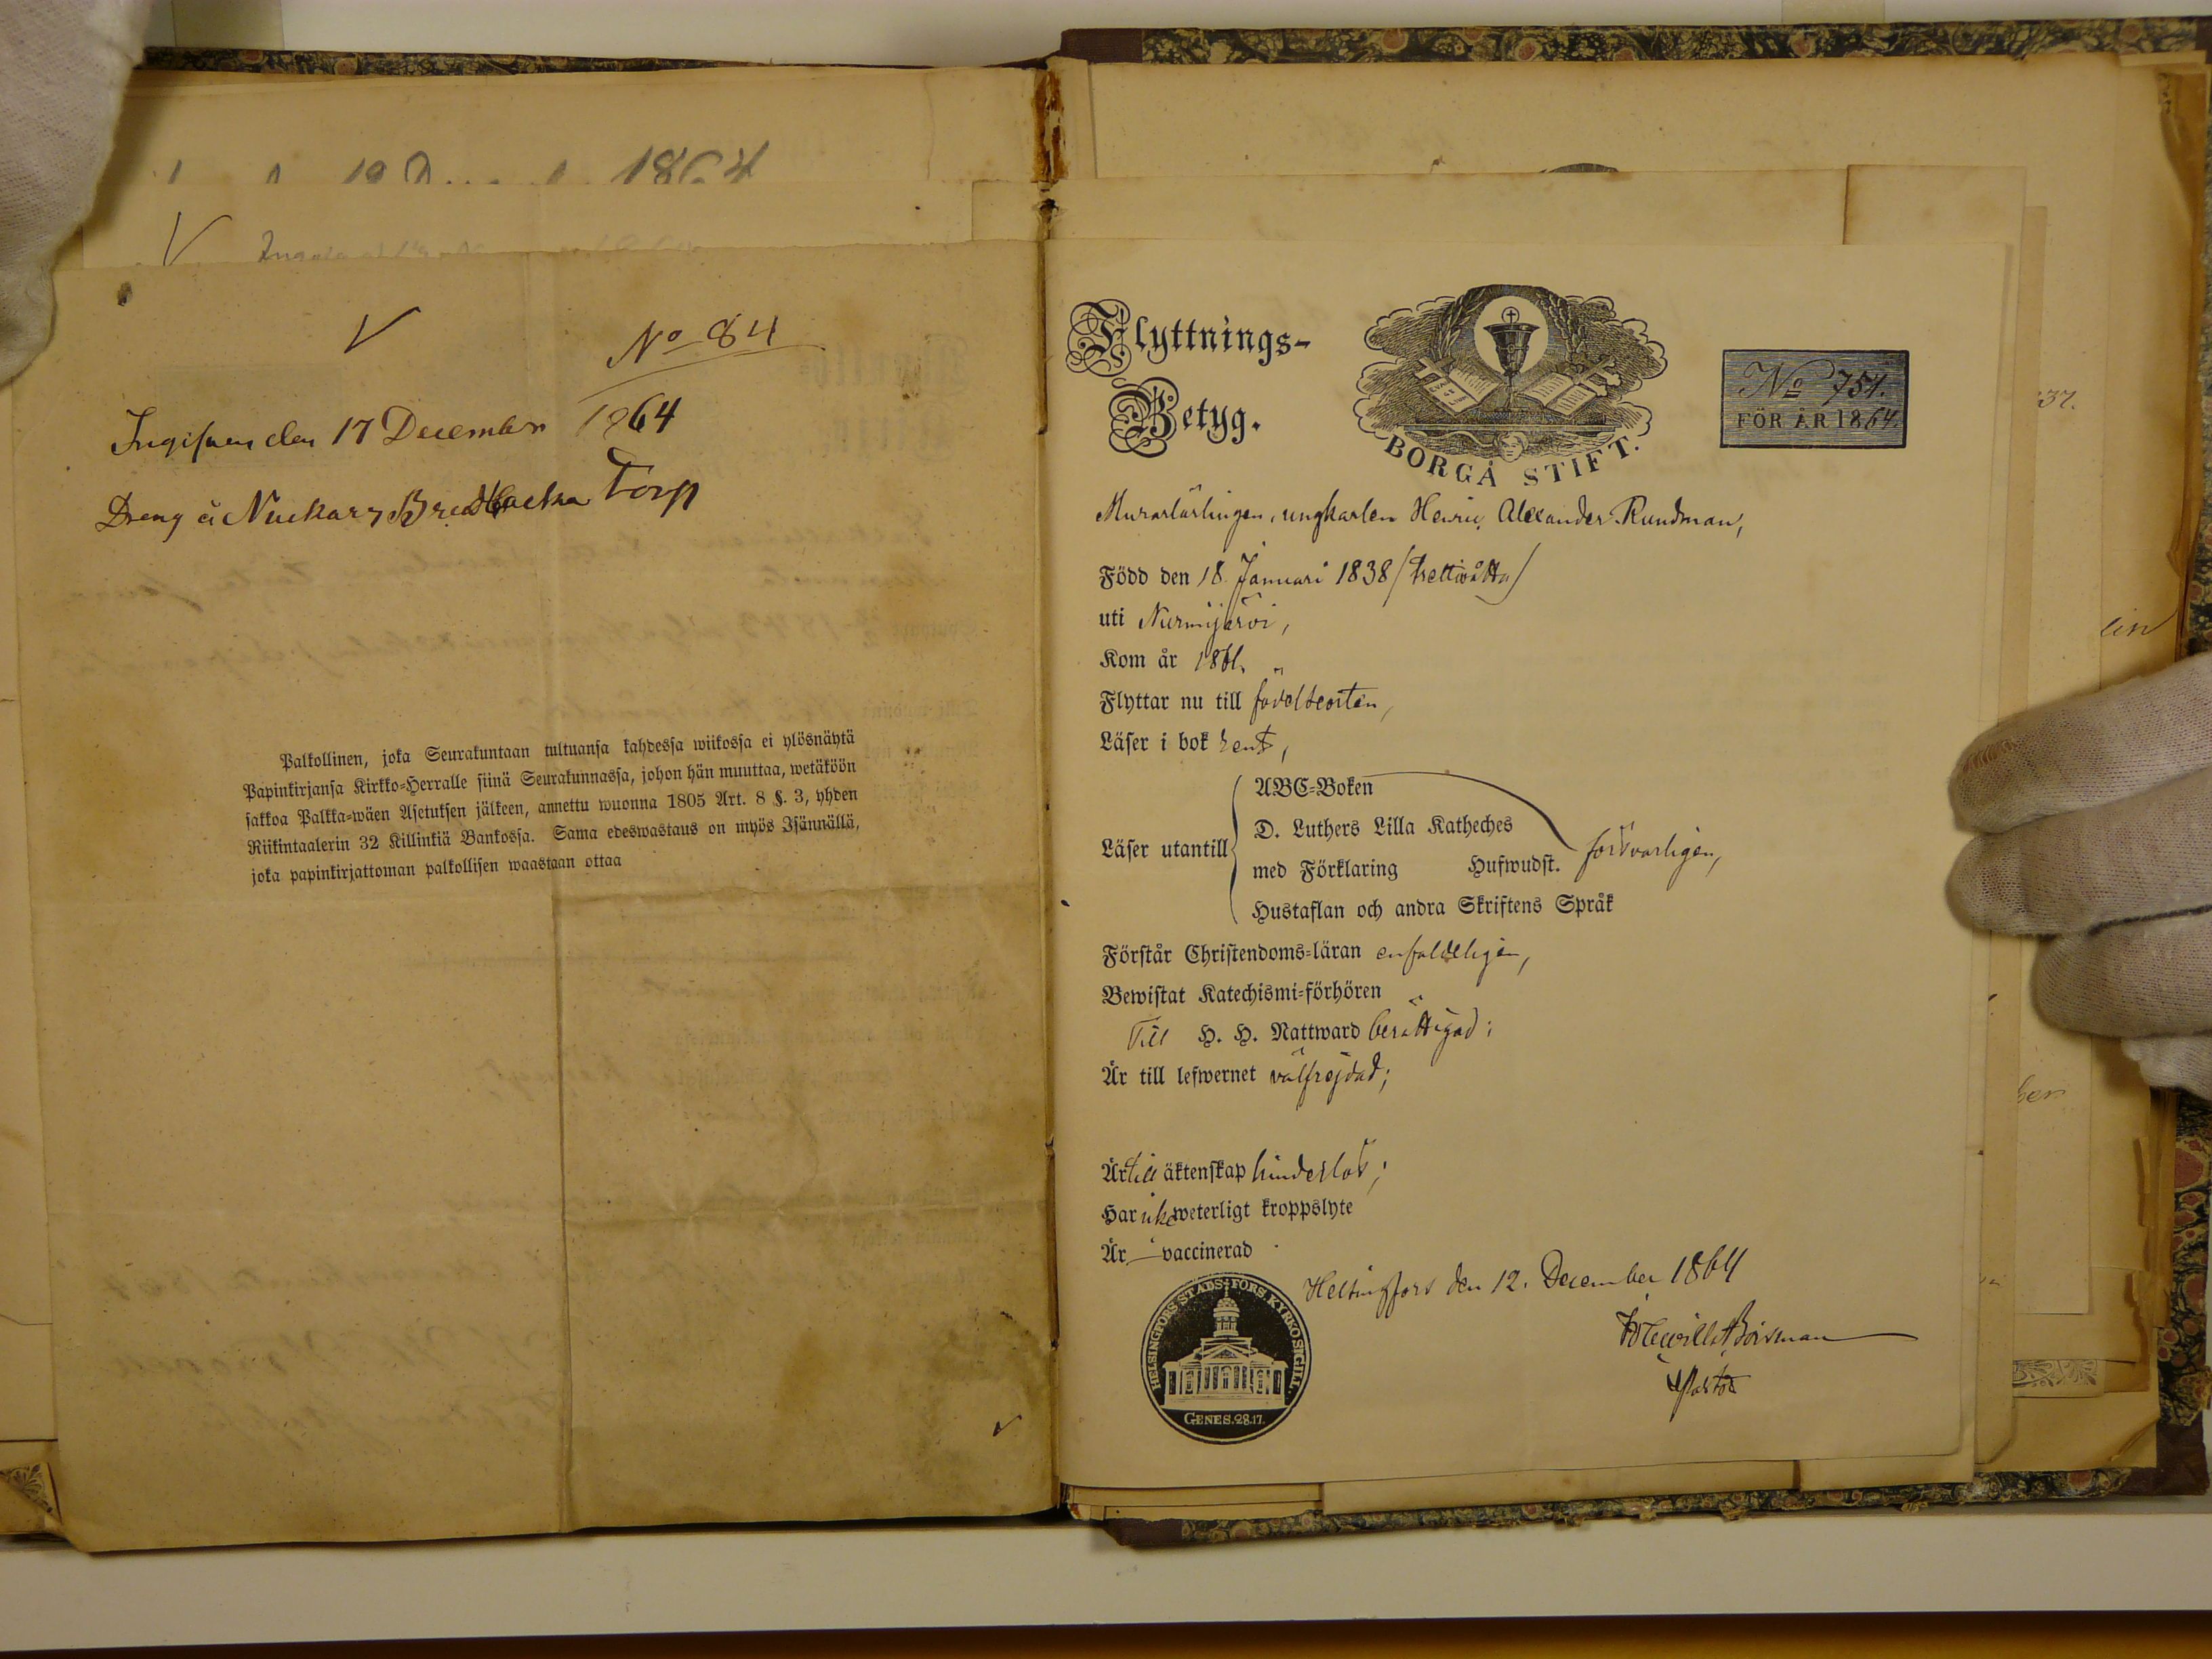 1864
V
No 84
Ingifven den 17 December 1864
Dreng å Nuckars Torp
Palkollinen, joka Seurakuntaan tultuansa kahdessa wiikossa ei ylösnäytä
Papinkirjansa Kirkko-Herralle siinä Seurakunnassa, johon hän muuttaa, wetäköön
sakkoa Palkka-wäen Asetuksen jälkeen, annettu wuonna 1805 Art. 8 §. 3, yhden
Riikintaalerin 32 Killinkiä Bankossa. Sama edeswastaus on myös Isännällä,
joka papinkirjattoman palkollisen waastaan ottaa
Flyttnings-
Betyg.
BORGÅ STIFT.
No 751.
FÖR ÅR 1864.
Murarlärlingen, ungkarlen Henric Alexander Rundman,
Född den 18 Januari 1838 (trettioåtta)
uti Nurmijärvi,
Kom år 1861.
Flyttar nu till födelseorten,
Läser i bok rent,
ABC-Boken
D. Luthers Lilla Katheches
Läser utantill med Förklaring Hufwudst. försvarligen,
Hustaflan och andra Skriftens Språk
Förstår Christendoms-läran enfaldeligen,
Bewistat Katechismi-förhören
Till H. H. Nattward berättigad;
Är till lefwernet välfrejdad;
Är till äktenskap hinderlös;
Har icke weterligt kroppslyte
Är — vaccinerad
Helsingfors den 12. December 1864
Pastor
HELSINGFORS STADS FÖRS. KYRKO SIGILL.
GENES. 28.17.